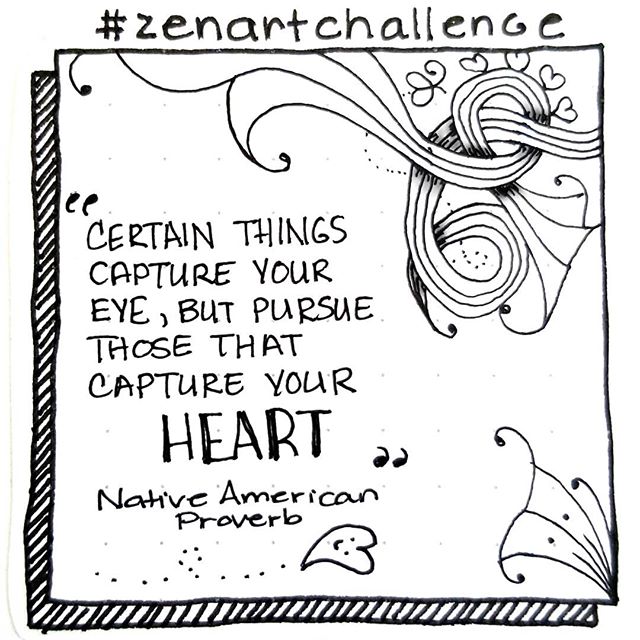 #zenartchallenge
"CERTAIN THINGS
CAPTURE YOUR
EYE, BUT PURSUE
THOSE THAT
CAPTURE YOUR
HEART"
Native American
Proverb